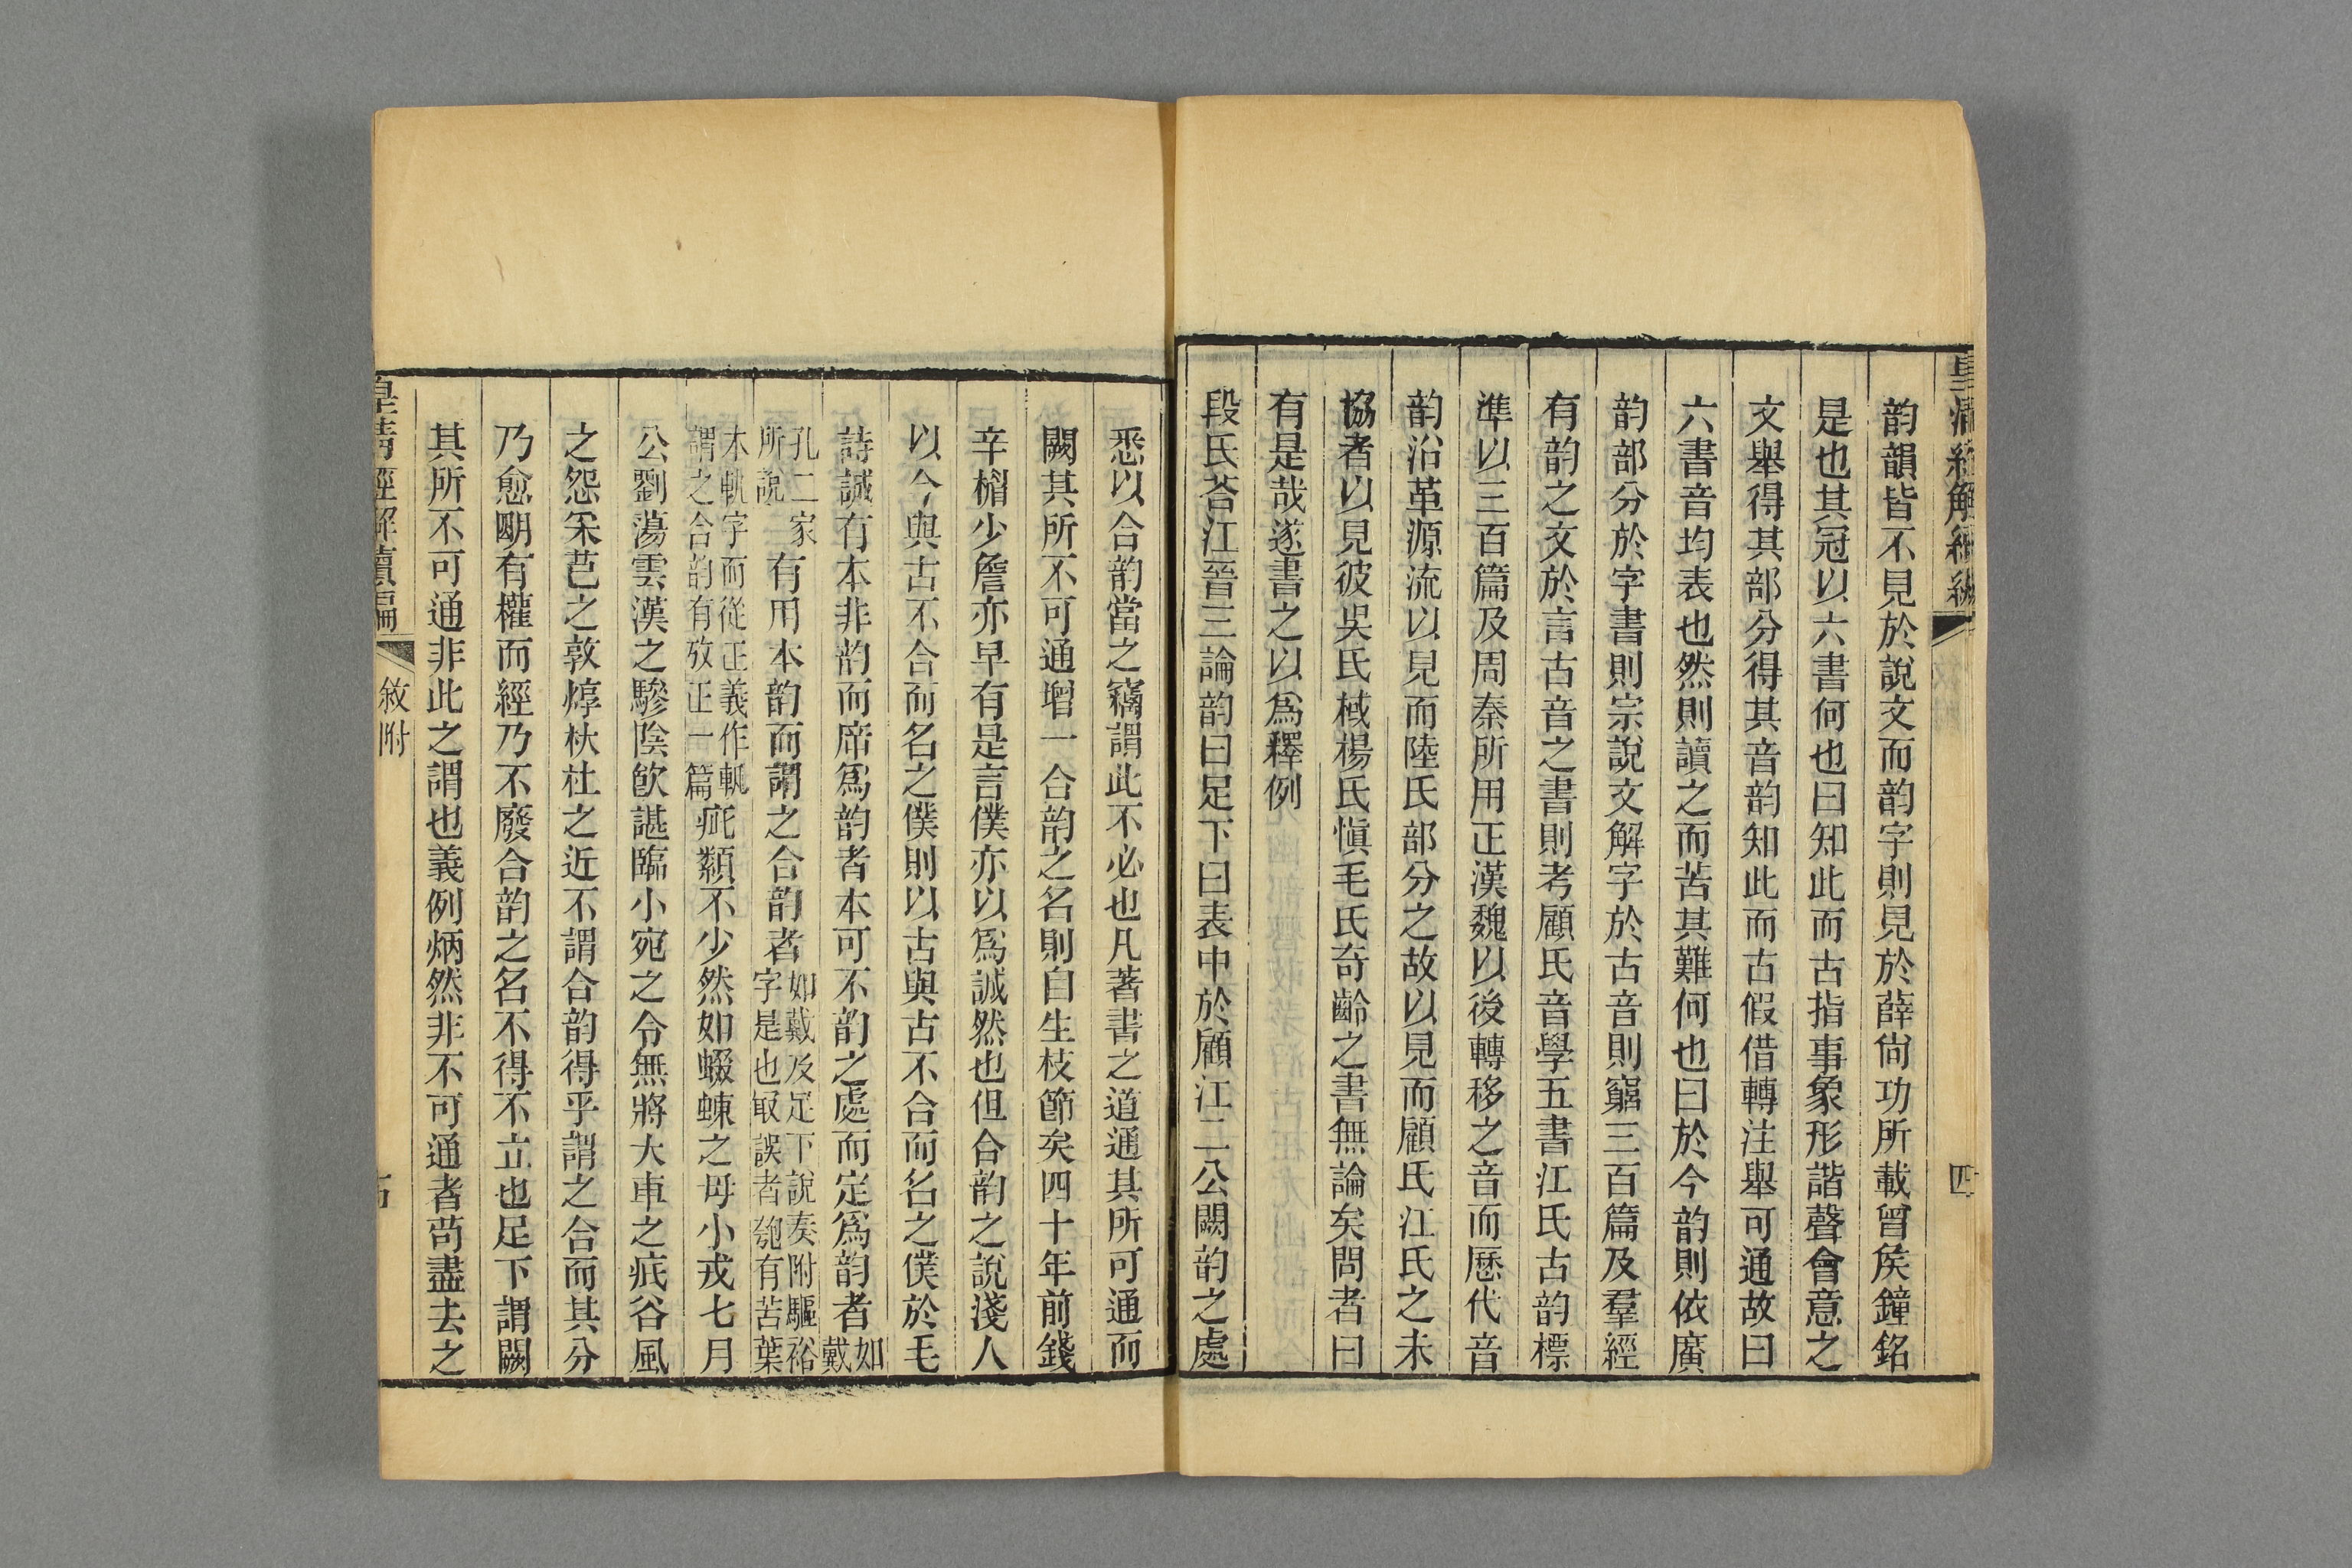 皇清經解續編
四
韵韻皆不見於說文而韵字則見於薛尙功所載曾矦鐘銘
是也其冠以六書何也曰知此而古指事象形諧聲會意之
文舉得其部分得其音韵知此而古假借轉注舉可通故曰
六書音均表也然則讀之而苦其難何也曰於今韵則依廣
韵部分於字書則宗說文解字於古音則窮三百篇及羣經
有韵之文於言古音之書則考顧氏音學五書江氏古韵標
準以三百篇及周秦所用正漢魏以後轉移之音而歷代音
韵沿革源流以見而陸氏部分之故以見而顧氏江氏之未
協者以見彼吳氏棫楊氏愼毛氏奇齡之書無論矣問者曰
有是哉遂書之以爲釋例
段氏荅江晉三論韵曰足下曰表中於顧江二公闕韵之處
悉以合韵當之竊謂此不必也凡著書之道通其所可通而
闕其所不可通增一合韵之名則自生枝節矣四十年前錢
辛楣少詹亦早有是言僕亦以爲誠然也但合韵之說淺人
以今與古不合而名之僕則以古與古不合而名之僕於毛
詩誠有本非韵而席爲韵者本可不韵之處而定爲韵者如戴
孔二家所說有用本韵而謂之合韵者如戴及足下說奏附驅裕字是也取誤者匏有苦葉
本軌字而從正義作軓謂之合韵有攷正一篇疵纇不少然如蝃蝀之母小戎七月
公劉蕩雲漢之驂陰飮諶臨小宛之令無將大車之疧谷風
之怨采芑之敦焞杕杜之近不謂合韵得乎謂之合而其分
乃愈朙有權而經乃不廢合韵之名不得不立也足下謂闕
其所不可通非此之謂也義例炳然非不可通者苟盡去之
皇清經解續編
敘附